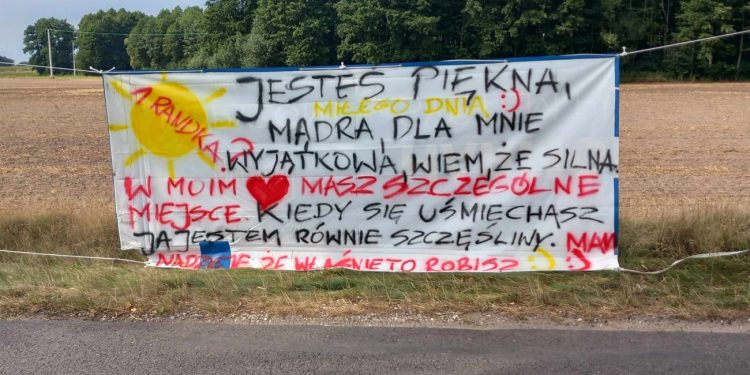 JESTEŚ PIĘKNA,
MIŁEGO DNIA :)
1 RANDKA?
MĄDRA, DLA MNIE
WYJĄTKOWA, WIEM, ŻE SILNA.
W MOIM ❤ MASZ SZCZEGÓLNE
MIEJSCE. KIEDY SIĘ UŚMIECHASZ
JA JESTEM RÓWNIE SZCZĘŚLINY. MAM
NADZIEJE ŻE WŁAŚNIE TO ROBISZ :) :)